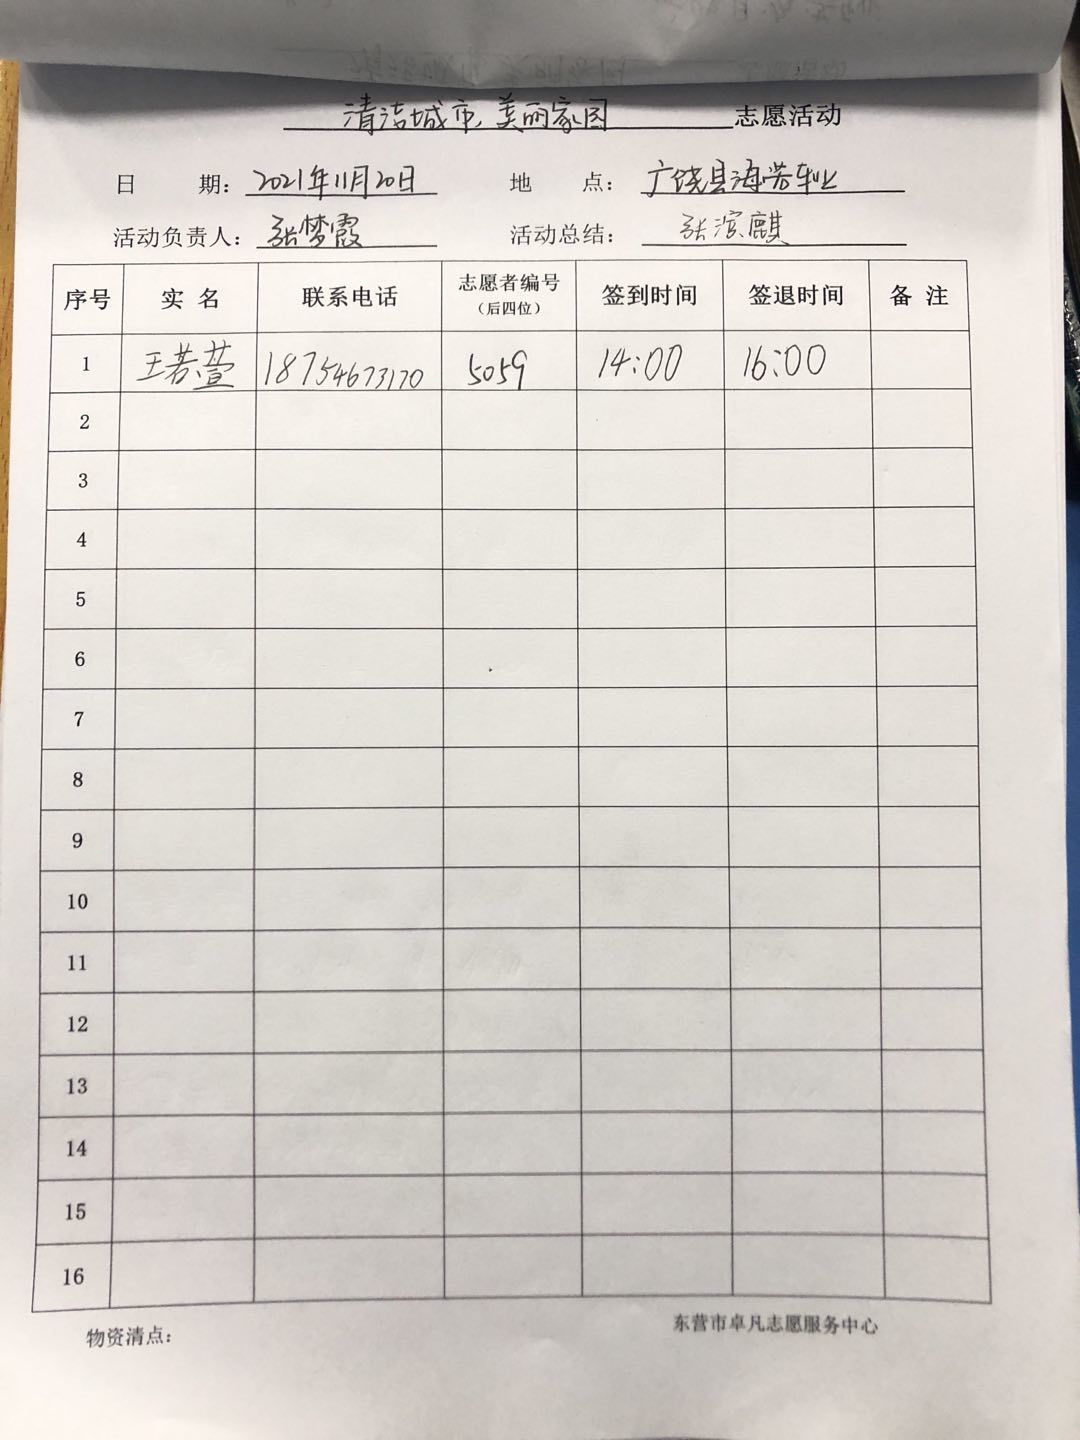 清洁城市,美丽家园 志愿活动
日 期: 2021年11月20日 地 点: 广饶县海诺车业
活动负责人: 张梦霞 活动总结: 张滨麒
序号 实 名 联系电话 志愿者编号 (后四位) 签到时间 签退时间 备 注
1 王若萱 18754673170 5059 14:00 16:00
2
3
4
5
6
7
8
9
10
11
12
13
14
15
16
物资清点: 东营市卓凡志愿服务中心